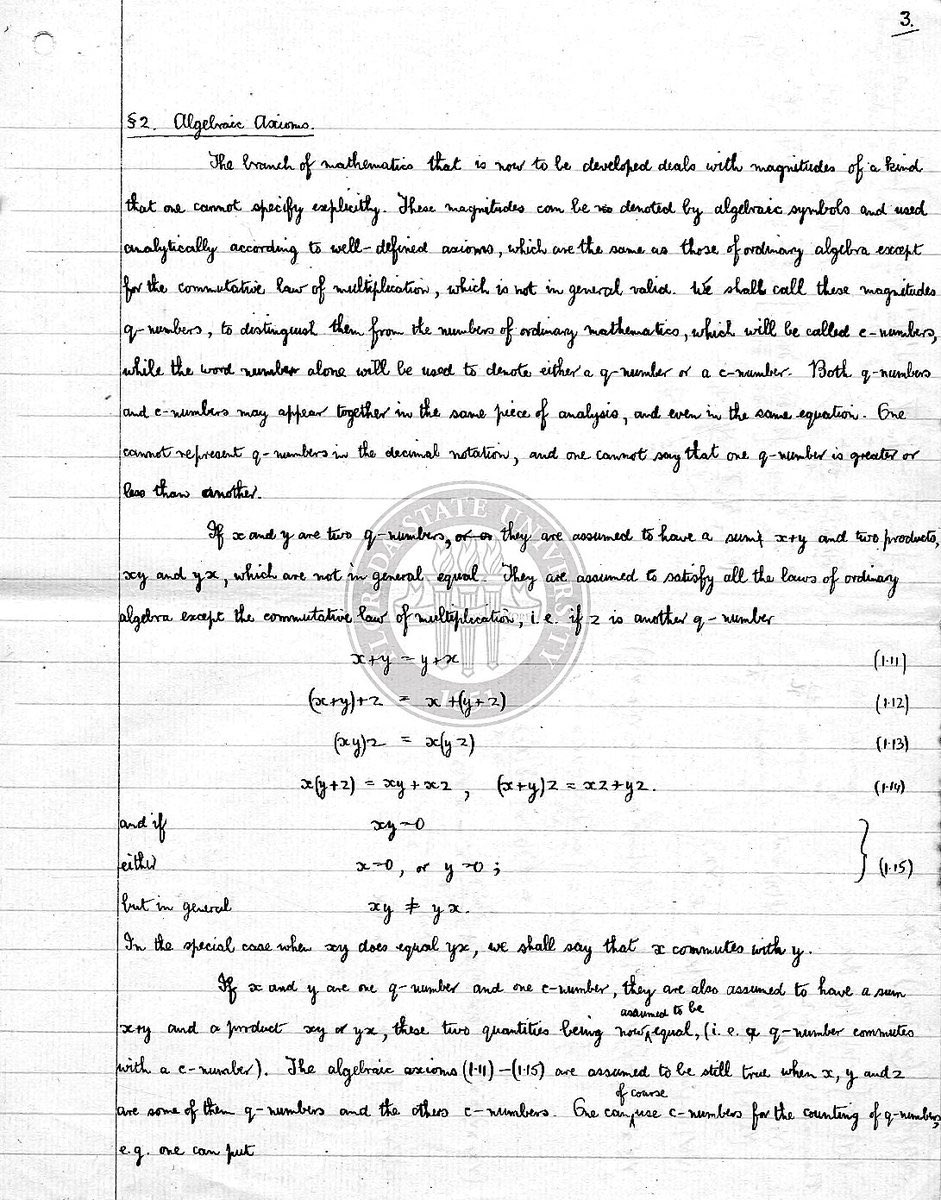 3.
§2. Algebraic Axioms.
The branch of mathematics that is now to be developed deals with magnitudes of a kind
that one cannot specify explicitly. These magnitudes can be denoted by algebraic symbols and used
analytically according to well-defined axioms, which are the same as those of ordinary algebra except
for the commutative law of multiplication, which is not in general valid. We shall call these magnitudes
q-numbers, to distinguish them from the numbers of ordinary mathematics, which will be called c-numbers,
while the word number alone will be used to denote either a q-number or a c-number. Both q-numbers
and c-numbers may appear together in the same piece of analysis, and even in the same equation. One
cannot represent q-numbers in the decimal notation, and one cannot say that one q-number is greater or
less than another.
If x and y are two q-numbers, they are assumed to have a sum x+y and two products,
xy and yx, which are not in general equal. They are assumed to satisfy all the laws of ordinary
algebra except the commutative law of multiplication, i.e. if z is another q-number
x+y = y+x (1·11)
(x+y)+z = x+(y+z) (1·12)
(xy)z = x(yz) (1·13)
x(y+z) = xy+xz, (x+y)z = xz+yz. (1·14)
and if xy=0
either x=0, or y=0; } (1·15)
but in general xy ≠ yx.
In the special case when xy does equal yx, we shall say that x commutes with y.
If x and y are one q-number and one c-number, they are also assumed to have a sum
x+y and a product xy or yx, these two quantities being now assumed to be equal, (i.e. a q-number commutes
with a c-number). The algebraic axioms (1·11)-(1·15) are assumed to be still true when x, y and z
are some of them q-numbers and the others c-numbers. One can of course use c-numbers for the counting of q-numbers,
e.g. one can put
FLORIDA STATE UNIVERSITY
1851